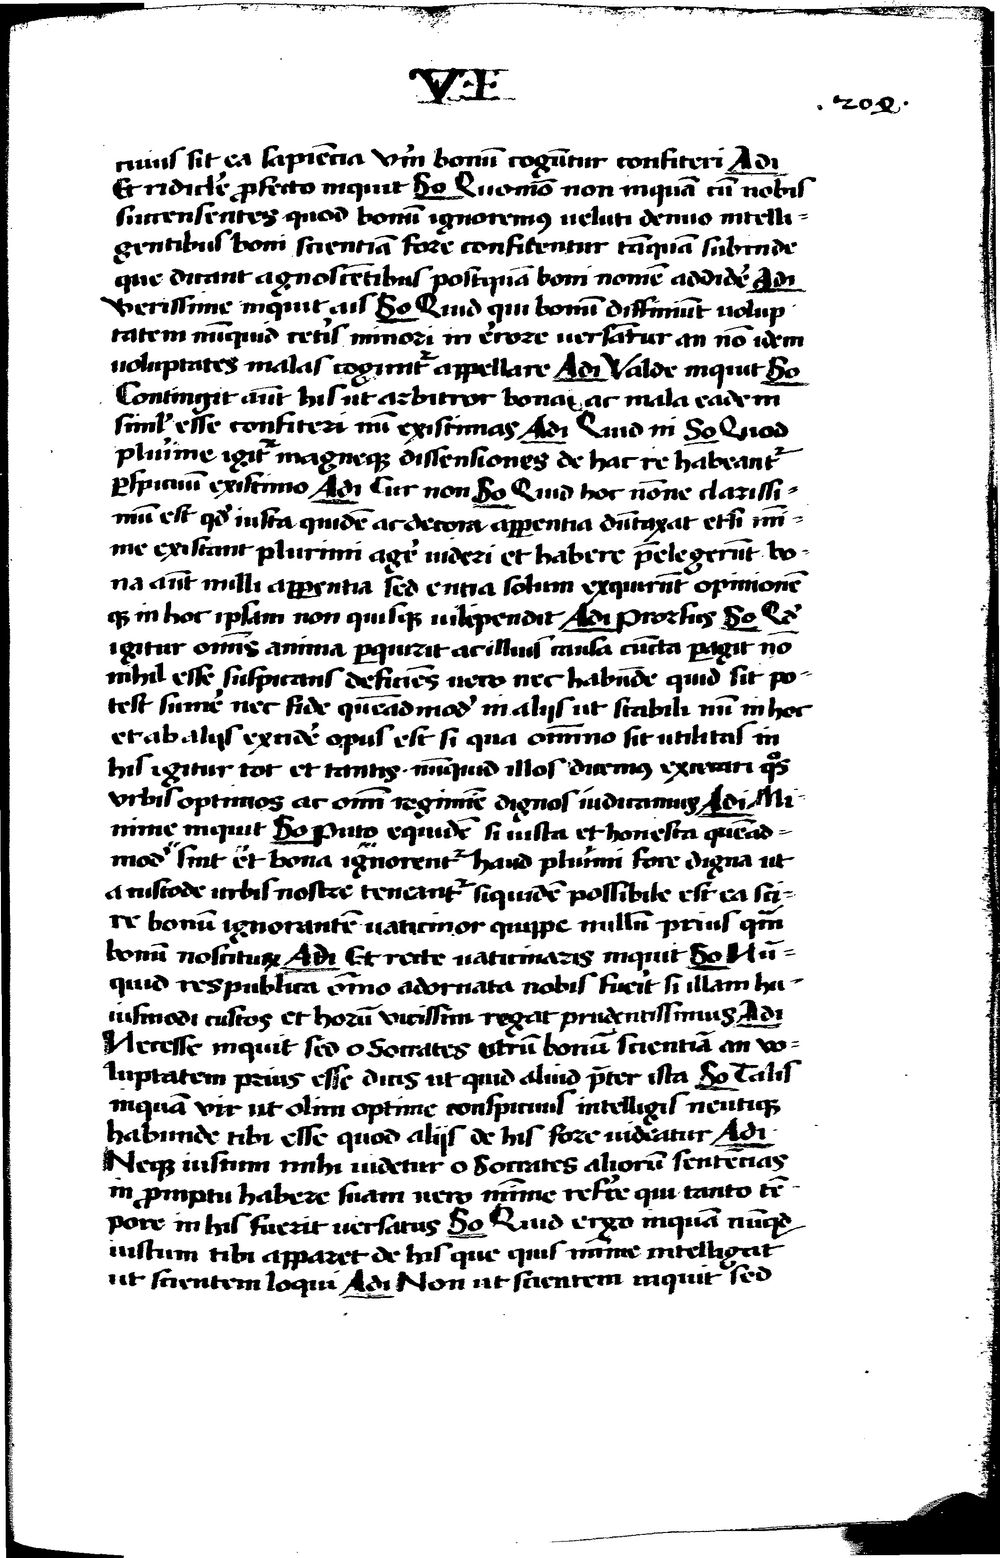 VI
.202.
cuius sit ea sapiẽcia vr̃m bonũ cogũtur confiteri Adi
Et ridicl'e ꝓfecto inquit So Quomõ non inquã cũ nobis
succensentes quod bonũ ignoremꝰ ueluti denuo intelli=
gentibus boni scientiã fore confitentur tãquã subinde
que dicant agnoscẽtibus postquã boni nomẽ addidẽ Adi
verissime inquit ais So Quid qui bonũ diffiniũt uolup
tatem nũquid cetis minori in erore uersãtur an nõ idem
uoluptates malas cogũt̃ appellare Adi Valde inquit So
Contingit aũt his ut arbitror bona ac mala eadem
simĩl esse confiteri nũ existimas Adi Quid ni So Quod
plurĩme igit̃ magneqꝫ dissensiones de hac re habeant̃
ꝑspicuũ existimo Adi Cur non So Quid hoc nõne clarissi=
mũ est qd̃ iusta quidẽ ac decora apparentia dũtaxat etsi mĩ=
me existant plurimi agẽ uideri et habere p̃elegerũt bo=
na aũt nulli apparentia sed entia solum exquirũt opinionẽ
qꝫ in hoc ipsam non quisqꝫ uilipendit Adi Prorsus So Qd̃
igitur omĩs anima ꝑquirit ac illius causa cũcta ꝑagit nõ
nihil esse suspicans deficiẽs uero nec habũde quid sit po=
test sumẽ nec fide quẽadmodũ in alijs ut stabili nũ in hoc
et ab alijs excidẽ opus est si qua omĩno sit utilitas in
his igitur tot et tantis nũquid illos dicemꝰ excecari qõs
vrbis optimos ac omĩ regimĩe dignos iudicamus Adi Mi=
nime inquit So Puto equidẽ si iusta et honesta quẽad=
modũ sint et bona ignorent̃ haud plurĩmi fore digna ut
a custode urbis nostre teneant̃ siquidẽ possibile est ea sci=
re bonũ ignorantẽ uaticinor quippe nullũ prius qm̃
bonũ noscitur Adi Et recte uaticinaris inquit So Nũ=
quid respublica oĩno adornata nobis fuerit si illam hu=
iusmodi custos et horũ vicissim regat prudentissimus Adi
Necesse inquit sed o Socrates utrũ bonũ scientiã an vo=
luptatem prius esse dicis ut quid aliud p̃ter ista So Talis
inquã vir ut olim optime conspicuus intelligis neutiqꝫ
habunde tibi esse quod alijs de his fore uideatur Adi
Neqꝫ iustum mihi uidetur o Socrates aliorũ sentẽcias
in ꝓmptu habere suam uero mĩime refer̃e qui tanto tẽ=
pore in his fuerit uersatus So Quid ergo inquã nũqd̃
iustum tibi apparet de his que quis mĩime intelligat
ut scientem loqui Adi Non ut scientem inquit sed